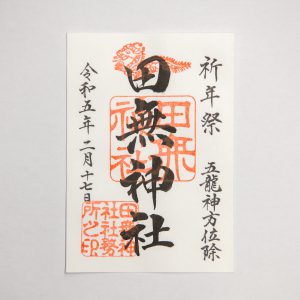 祈年祭
五龍神方位除
田無神社
田無
神社
令和五年二月十七日
田無神
社社務
所之印